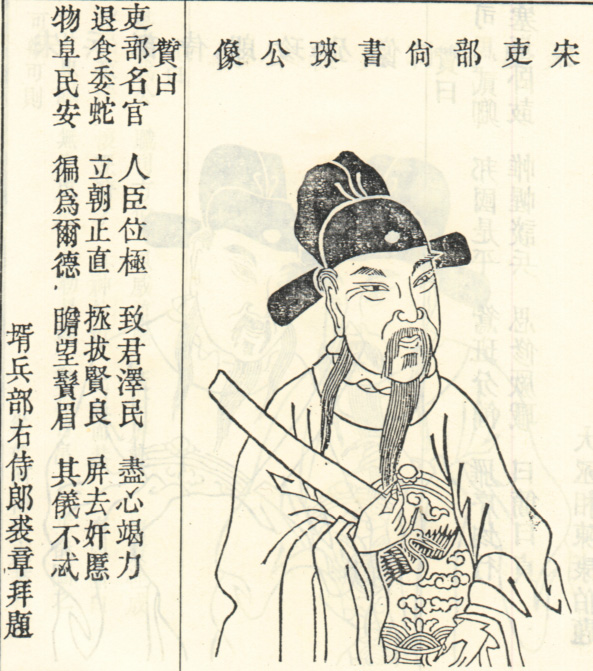 宋吏部尚書琜公像
贊曰
吏部名官 人臣位極 致君澤民 盡心竭力
退食委蛇 立朝正直 拯拔賢良 屏去奸慝
物阜民安 徧爲爾德 瞻望鬚眉 其儀不忒
壻兵部右侍郎裘章拜題